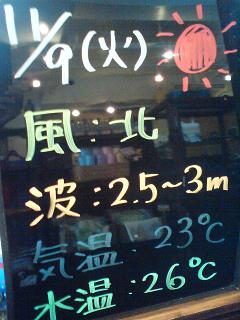 11/9(火)
風:北
波:2.5~3m
気温:23℃
水温:26℃